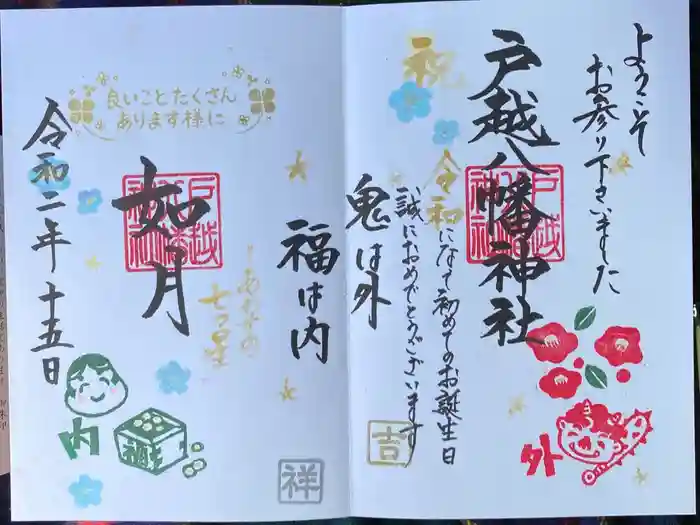 ようこそ
お参り下さいました
戸越八幡神社
戸越八幡神社
祝
令和になって初めてのお誕生日
誠におめでとうございます
鬼は外
吉
外
福は内
祥
良いことたくさん
あります様に
如月
あなたの
七つ星
令和二年 十五日
内
福